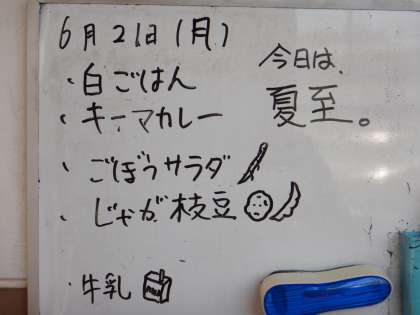 6月21日(月)
・白ごはん
・キーマカレー
・ごぼうサラダ
・じゃが枝豆
・牛乳
今日は、
夏至。